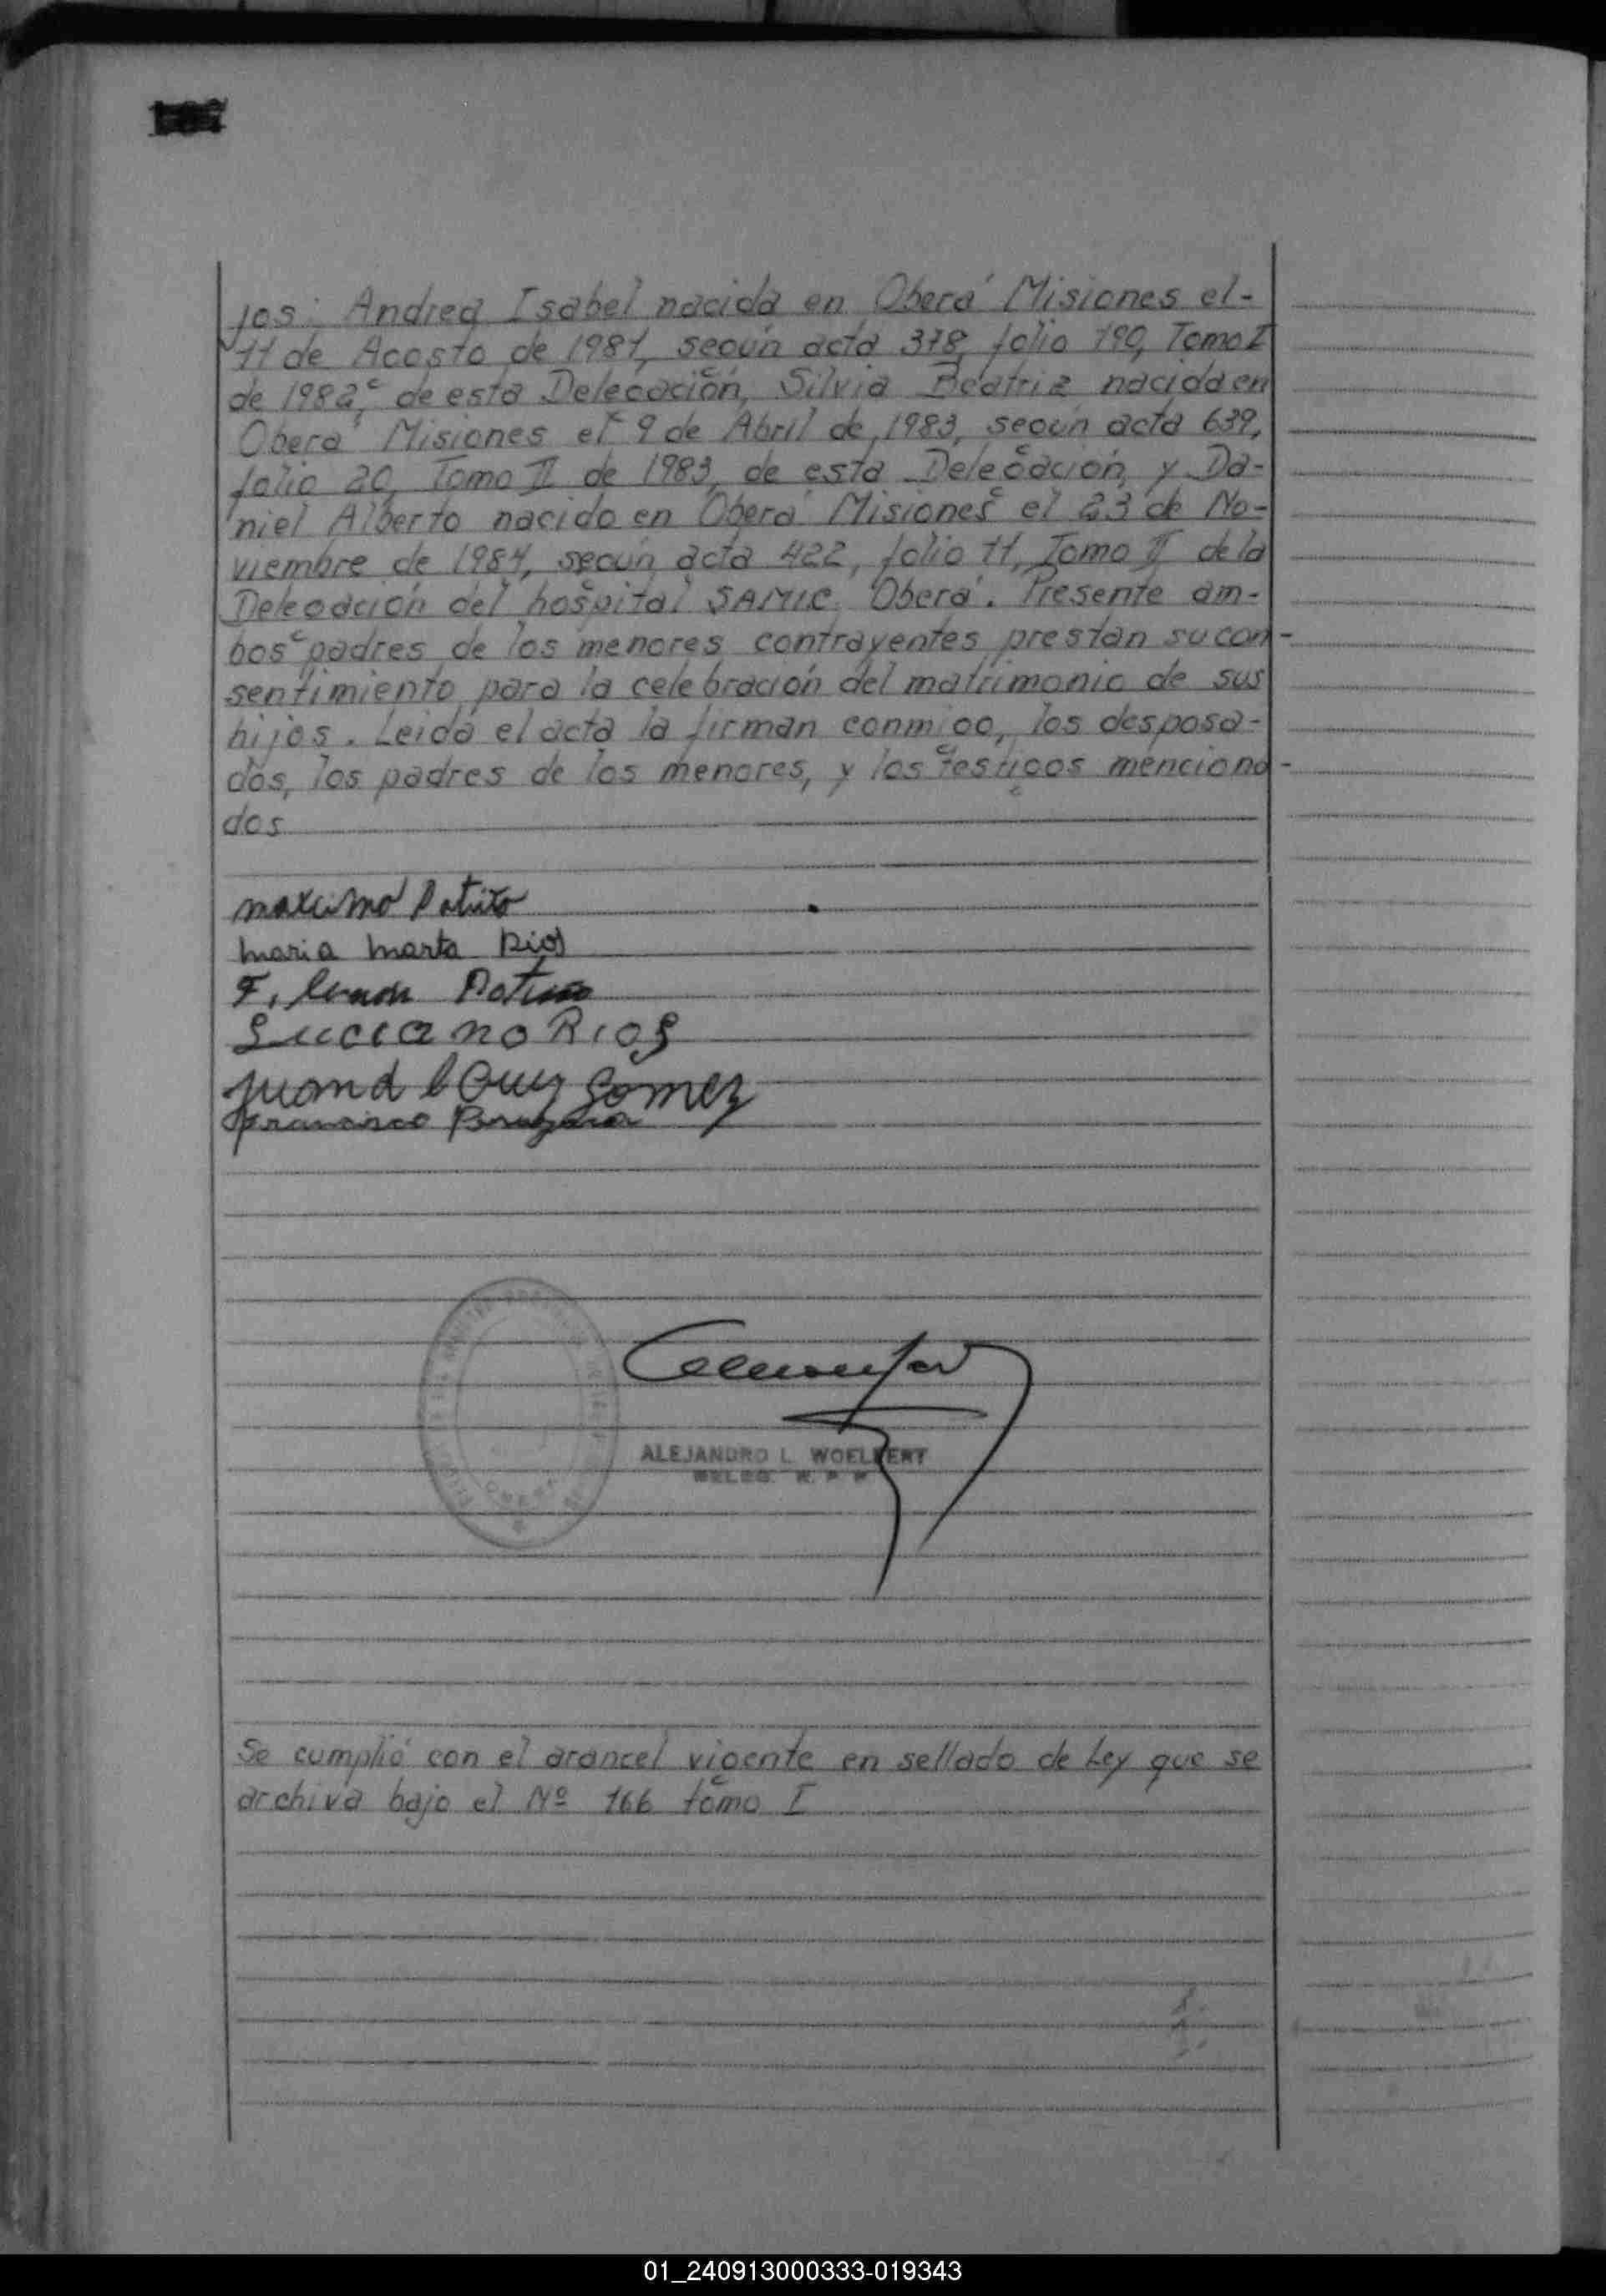 jos: Andrea Isabel nacida en Oberá Misiones el-
11 de Agosto de 1981, según acta 378, folio 190, Tomo I
de 1982, de esta Delegación, Silvia Beatriz nacida en
Oberá Misiones el 9 de Abril de 1983, según acta 639,
folio 20, Tomo II de 1983, de esta Delegación, y Da-
niel Alberto nacido en Oberá Misiones el 23 de No-
viembre de 1984, según acta 422, folio 11, Tomo II de la
Delegación del hospital SAMIC Oberá. Presente am-
bos padres de los menores contrayentes prestan su con-
sentimiento para la celebración del matrimonio de sus
hijos. Leida el acta la firman conmigo, los desposa-
dos, los padres de los menores, y los testigos menciona-
dos
maximo Patiño
maria marta Rios
Luciano Rios
Gomez
Francisco
ALEJANDRO L. WOELFERT
DELEG. R. P. P.
OBERA
Se cumplió con el arancel vigente en sellado de Ley que se
archiva bajo el Nº 166 tomo I
01_240913000333-019343